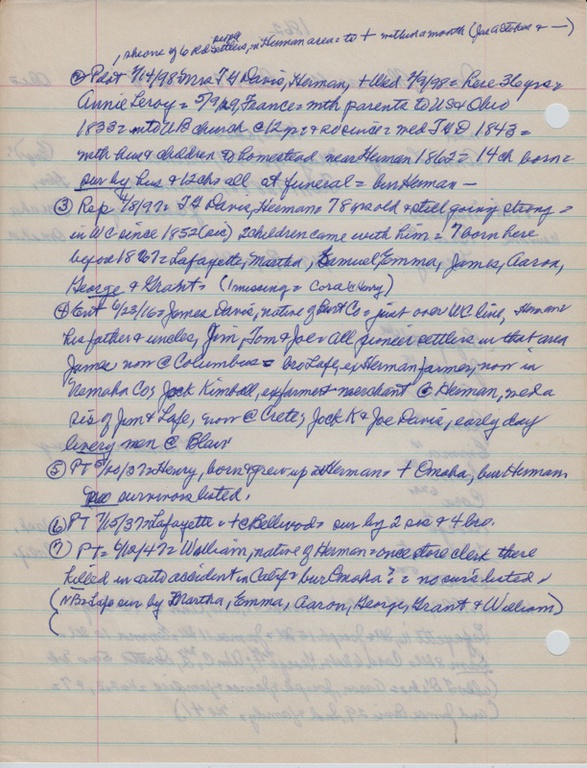 , she one of 6 old settlers, in Herman area = to + within a month (Joe a Stokes & —)
② Pilot 7/14/98 = Mrs T H Davis, Herman, + Wed 7/9/98 = here 36 yrs =
Annie Leroy = 5/9/29, France = mth parents to US & Ohio
1833 = into UB church @ 12 yr & so since = med T H D 1843 =
with hus & children to homestead near Herman 1862 = 14 ch born =
sur by hus & 12 chs all at funeral = bur Herman —
③ Rep 4/8/97 = T H Davis, Herman = 78 yrs old & still going strong =
in WC since 1852 (sic) 2 children came with him = 7 born here
before 1867 = Lafayette, Martha, Samuel, Emma, James, Aaron,
George & Grant = (1 missing = Cora & Henry)
④ Ent 6/23/16 = James Davis, native of Burt Co = just over WC line, Herman =
his father & uncles, Jim, Tom & Joe = All pioneer settlers in that area
James now @ Columbus = bro Lafe, ex Herman farmer, now in
Nemaha Co; Jock Kimball, ex farmer & merchant @ Herman, med a
sis of Jim & Lafe, now @ Crete; Jock K & Joe Davis, early day
livery men @ Blair
⑤ PT 5/20/37 = Henry, born & grew up @ Herman = + Omaha, bur Herman
no survivors listed.
⑥ PT 7/15/37 = Lafayette = + @ Bellwood = sur by 2 sis & 4 bro.
⑦ PT = 6/12/47 = William, native of Herman = once store clerk there
killed in auto accident in Calif = bur Omaha ? = no sur's listed =
(NB = Lafe sur by Martha, Emma, Aaron, George, Grant & William)